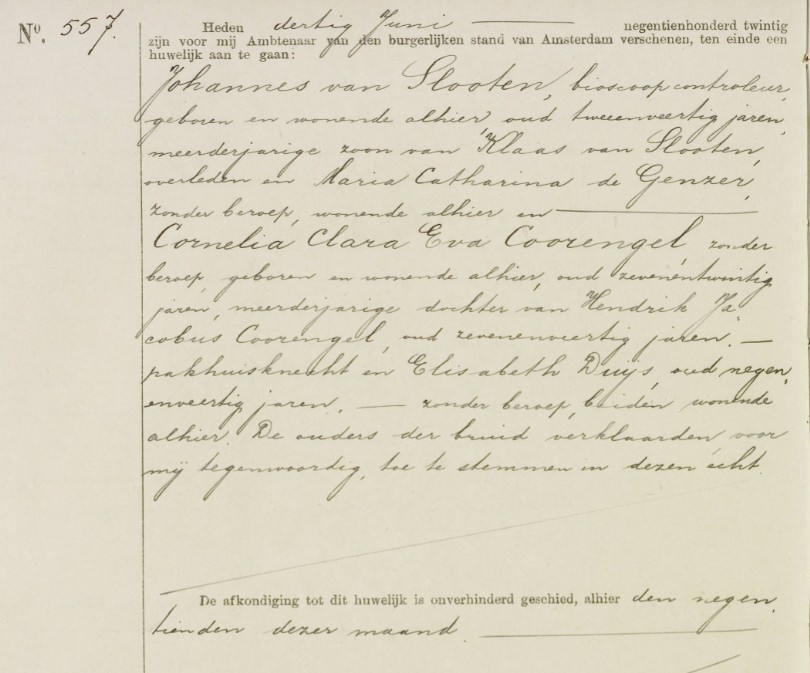 No. 557.
Heden dertig Juni negentienhonderd twintig
zijn voor mij Ambtenaar van den burgerlijken stand van Amsterdam verschenen, ten einde een
huwelijk aan te gaan:
Johannes van Slooten, bioscoopcontroleur,
geboren en wonende alhier, oud tweeenveertig jaren,
meerderjarige zoon van Klaas van Slooten,
overleden en Maria Catharina de Genzer,
zonder beroep, wonende alhier en
Cornelia Clara Eva Coorengel, zonder
beroep, geboren en wonende alhier, oud zevenentwintig
jaren, meerderjarige dochter van Hendrik Ja-
cobus Coorengel, oud zevenenveertig jaren. —
pakhuisknecht en Elisabeth Duijs, oud negen-
enveertig jaren, — zonder beroep, beiden wonende
alhier. De ouders der bruid verklaarden voor
mij tegenwoordig, toe te stemmen in dezen echt.
De afkondiging tot dit huwelijk is onverhinderd geschied, alhier den negen-
tienden dezer maand.